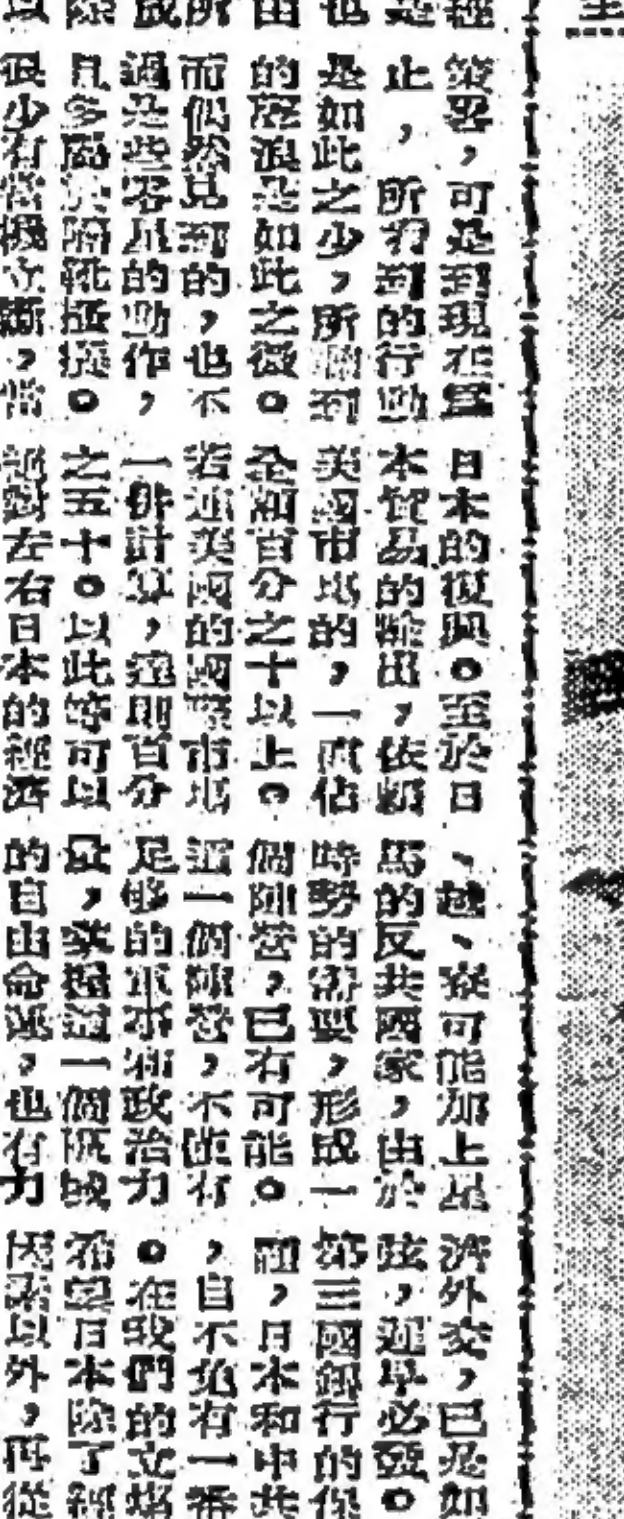 極
是
也
由
所
成
除
以
策畧，可是到現在爲
止，所看到的行動
是如此之少，所聽到
的壓浪是如此之微。
而偶然見到的，也不
過是些零星的動作，
且多屬於隔靴搔癢。
很少有當機立斷，當
日本的復興。至於日
本貿易的輸出，依賴
美國市場的，一直佔
全額百分之十以上。
若連美國的國際市場
一併計算，達則百分
之五十。以此等可以
絕對左右日本的經濟
、越、寮可能加上星
馬的反共國家，由於
時勢的需要，形成一
個陣營，已有可能。
這一個陣營，不僅有
足够的軍事和政治力
量，掌握這一個區域
的自由命運，也有力
濟外交，已是如
弦，遲早必發。
第三國銀行的保
證，日本和中共
，自不免有一番
。在我們的立場
希望日本除了經
因素以外，再從